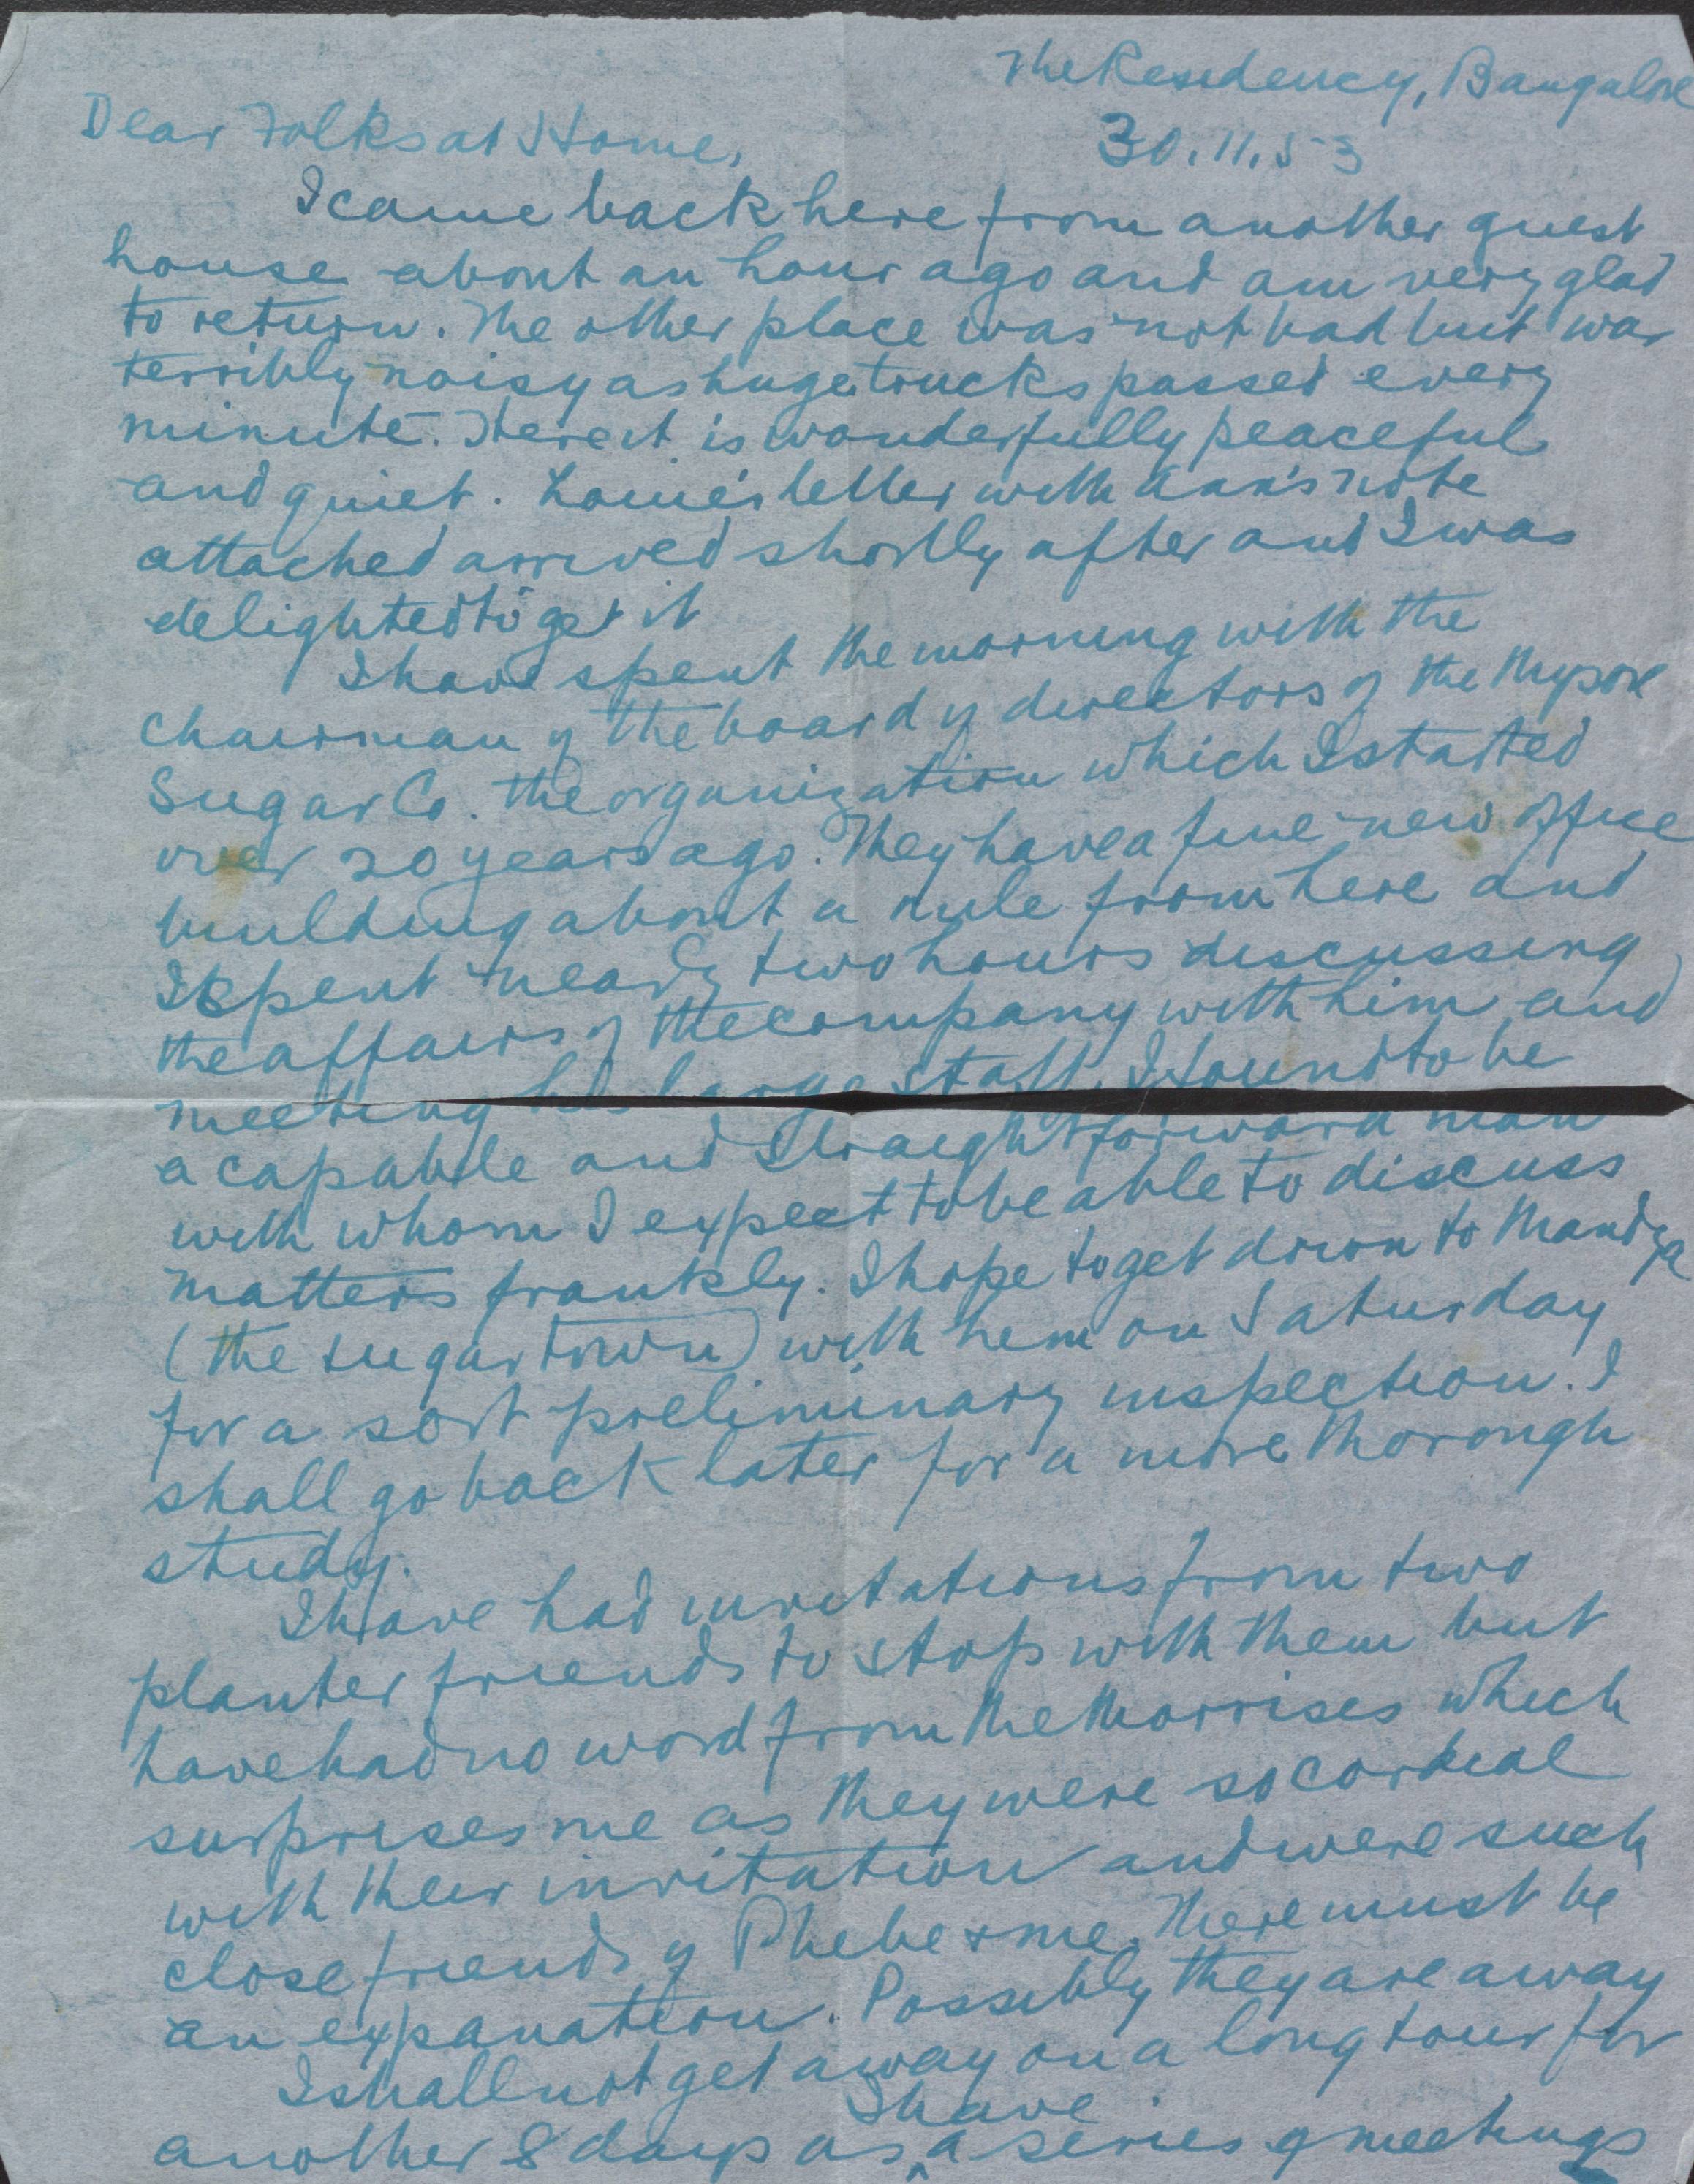 The Residency, Bangalore
30.11.53
Dear Folks at Home,
I came back here from another guest
house about an hour ago and am very glad
to return. The other place was not bad but was
terribly noisy as huge trucks passed every
minute. Here it is wonderfully peaceful
and quiet. Louie's letter with Ann's note
attached arrived shortly after and I was
delighted to get it
I have spent the morning with the
chairman of the board of directors of the Mysore
Sugar Co. the organization which I started
over 20 years ago. They have a fine new office
building about a mile from here and
I spent nearly two hours discussing
the affairs of the company with him and
meeting his large staff. I found to be
a capable and straight forward man
with whom I expect to be able to discuss
matters frankly. I hope to get down to Mandya
(the sugar town) with him on Saturday
for a sort preliminary inspection. I
shall go back later for a more thorough
study.
I have had invitations from two
planter friends to stop with them but
have had no word from the Morrises which
surprises me as they were so cordial
with their invitation and were such
close friends of Phebe & me. There must be
an expanation. Possibly they are away
I shall not get away on a long tour for
another 8 days as ^ I have a series of meetings